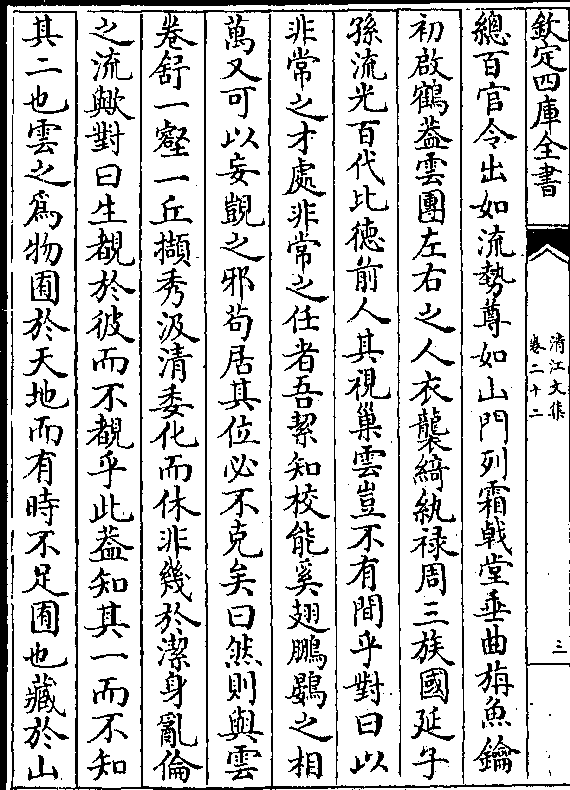 欽定四庫全書
清江文集
卷二十二
三
總百官令出如流勢尊如山門列霜㦸堂垂曲旃魚鑰
初啟鶴葢雲團左右之人衣襲綺紈祿周三族國延子
孫流光百代比徳前人其視巢雲豈不有間乎對曰以
非常之才處非常之任者吾絜知校能奚翅鵬鷃之相
萬又可以妄覬之邪茍居其位必不克矣曰然則與雲
卷舒一壑一丘擷秀汲清委化而休非幾於潔身亂倫
之流歟對曰生覩於彼而不覩乎此葢知其一而不知
其二也雲之為物囿於天地而有時不足囿也藏於山